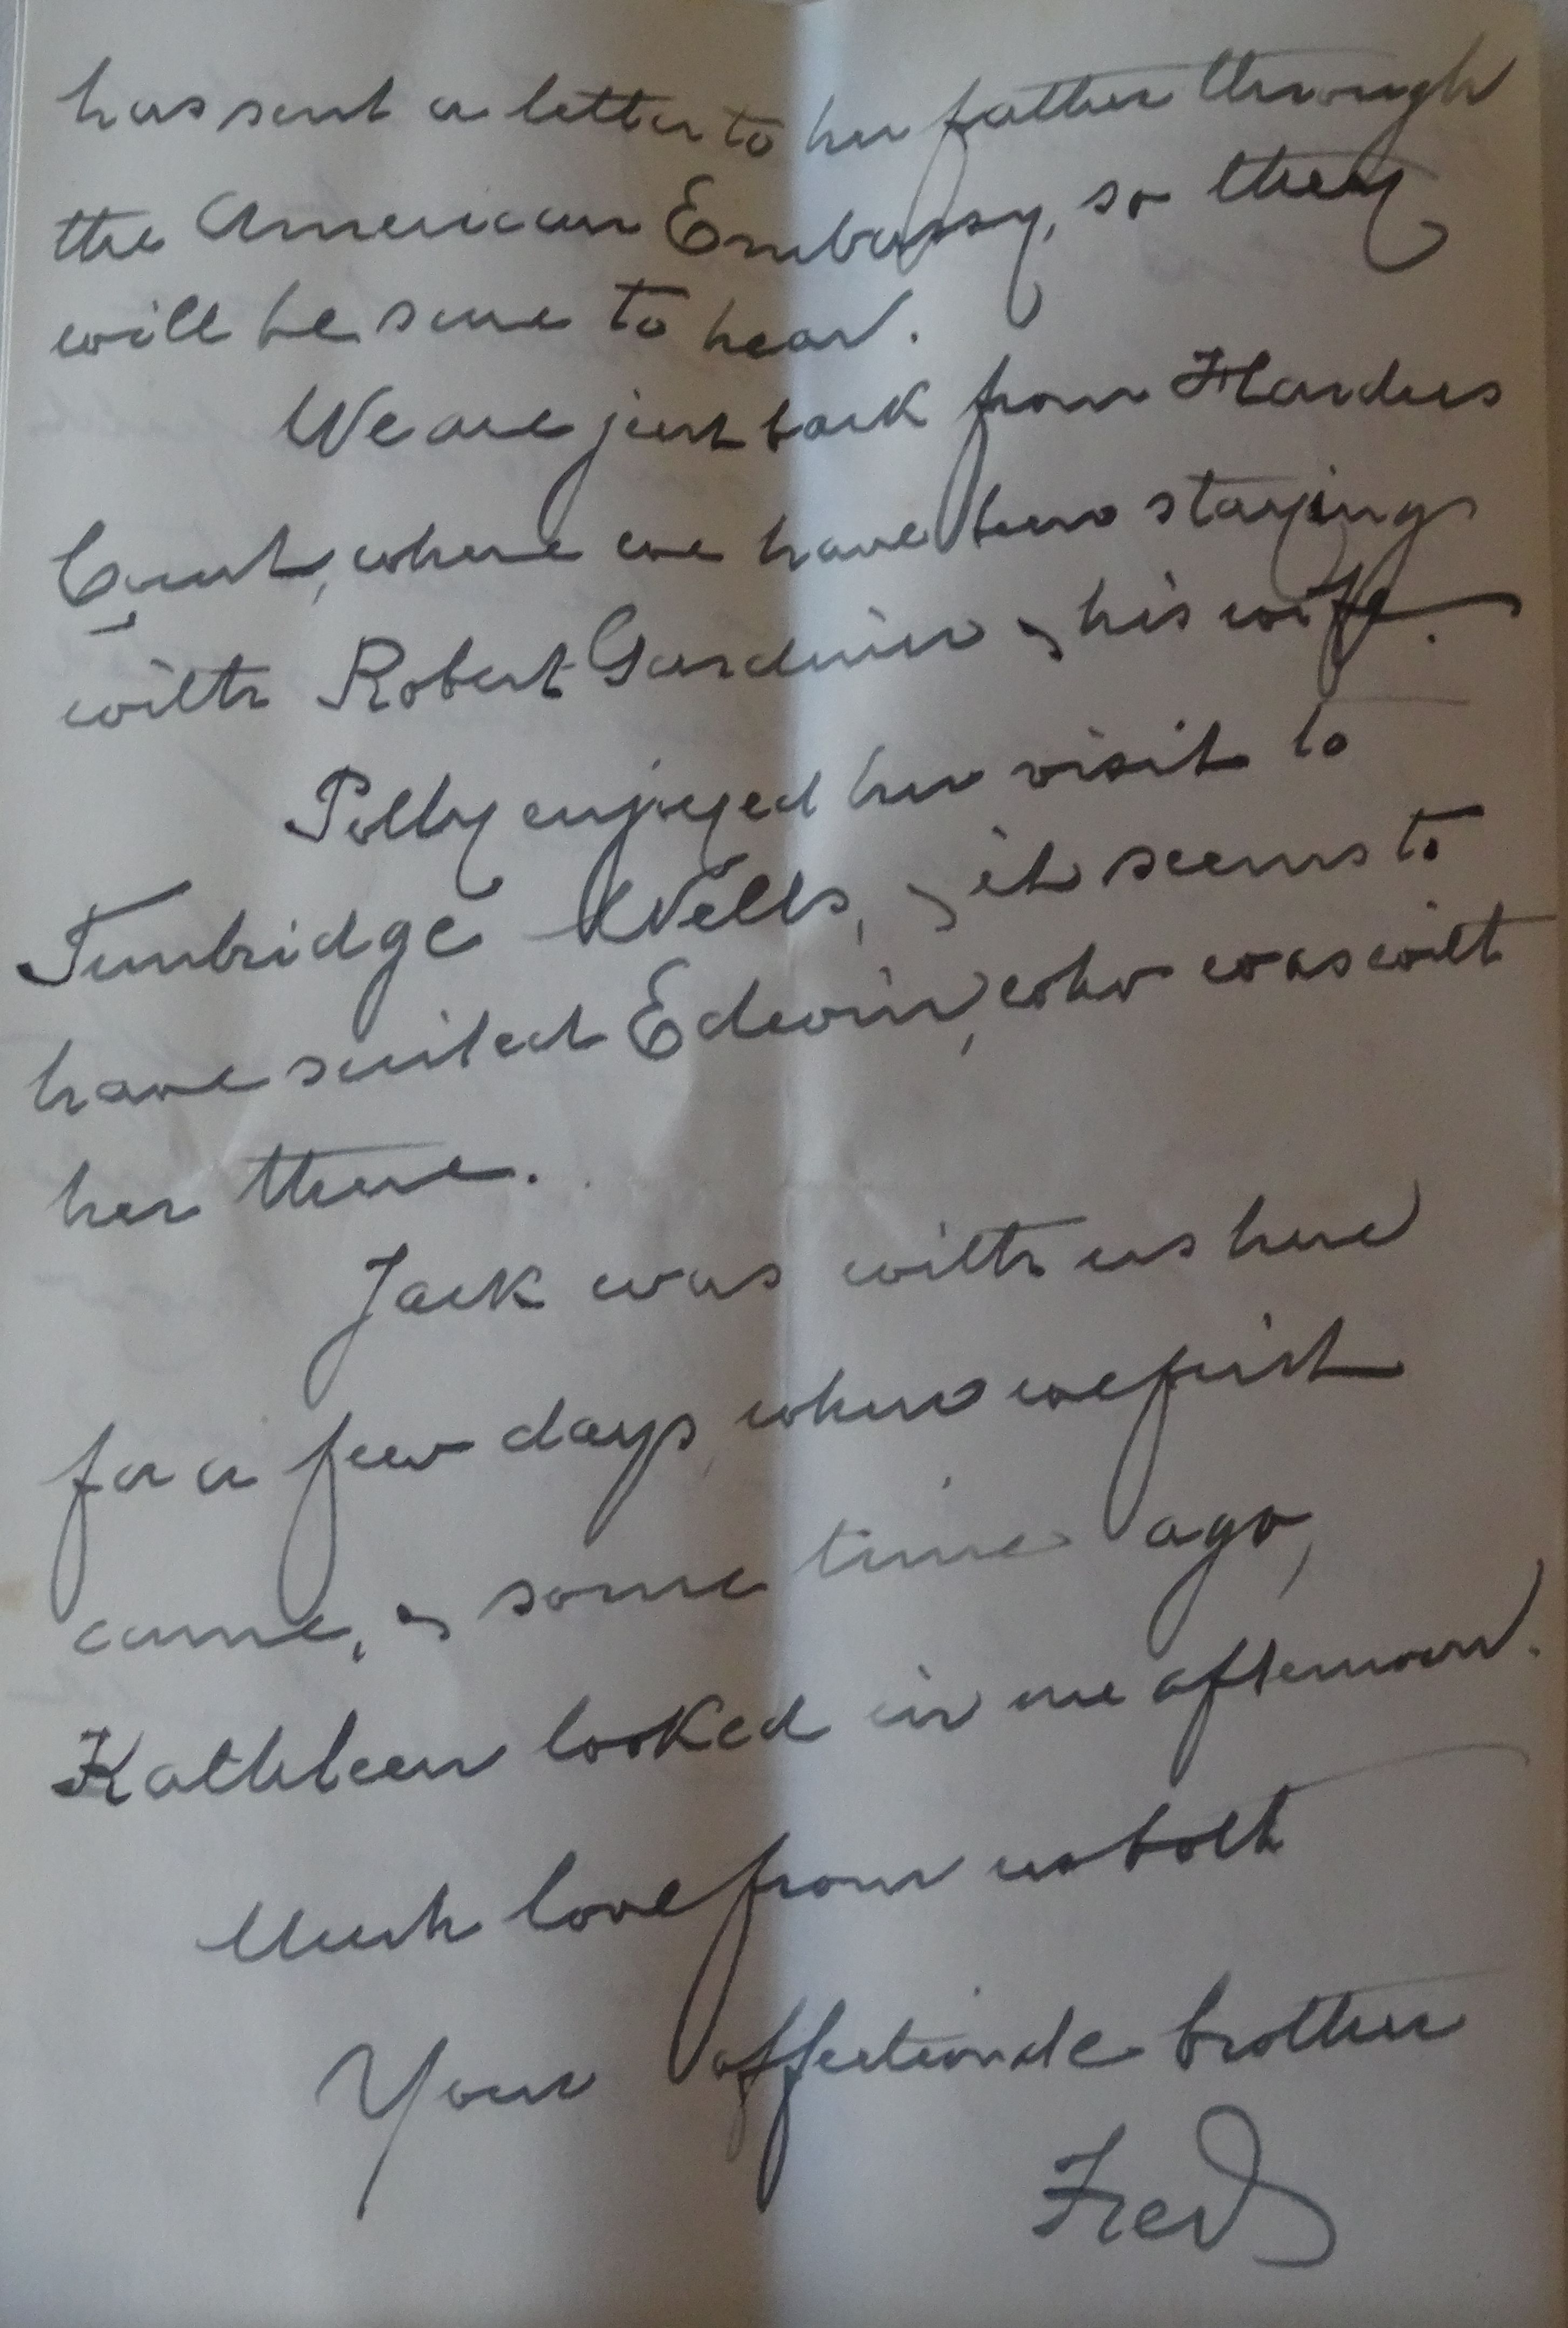 has sent a letter to her father through
the American Embassy, so they
will be sure to hear.
We are just back from Flanders
Court, where we have been staying
with Robert Gardiner & his wife.
Polly enjoyed her visit to
Tunbridge Wells, & it seems to
have suited Edwin, who was with
her there.
Jack was with us here
for a few days when we first
came, & some time ago,
Kathleen looked in one afternoon.
Much love from us both
Your affectionate brother
Fred